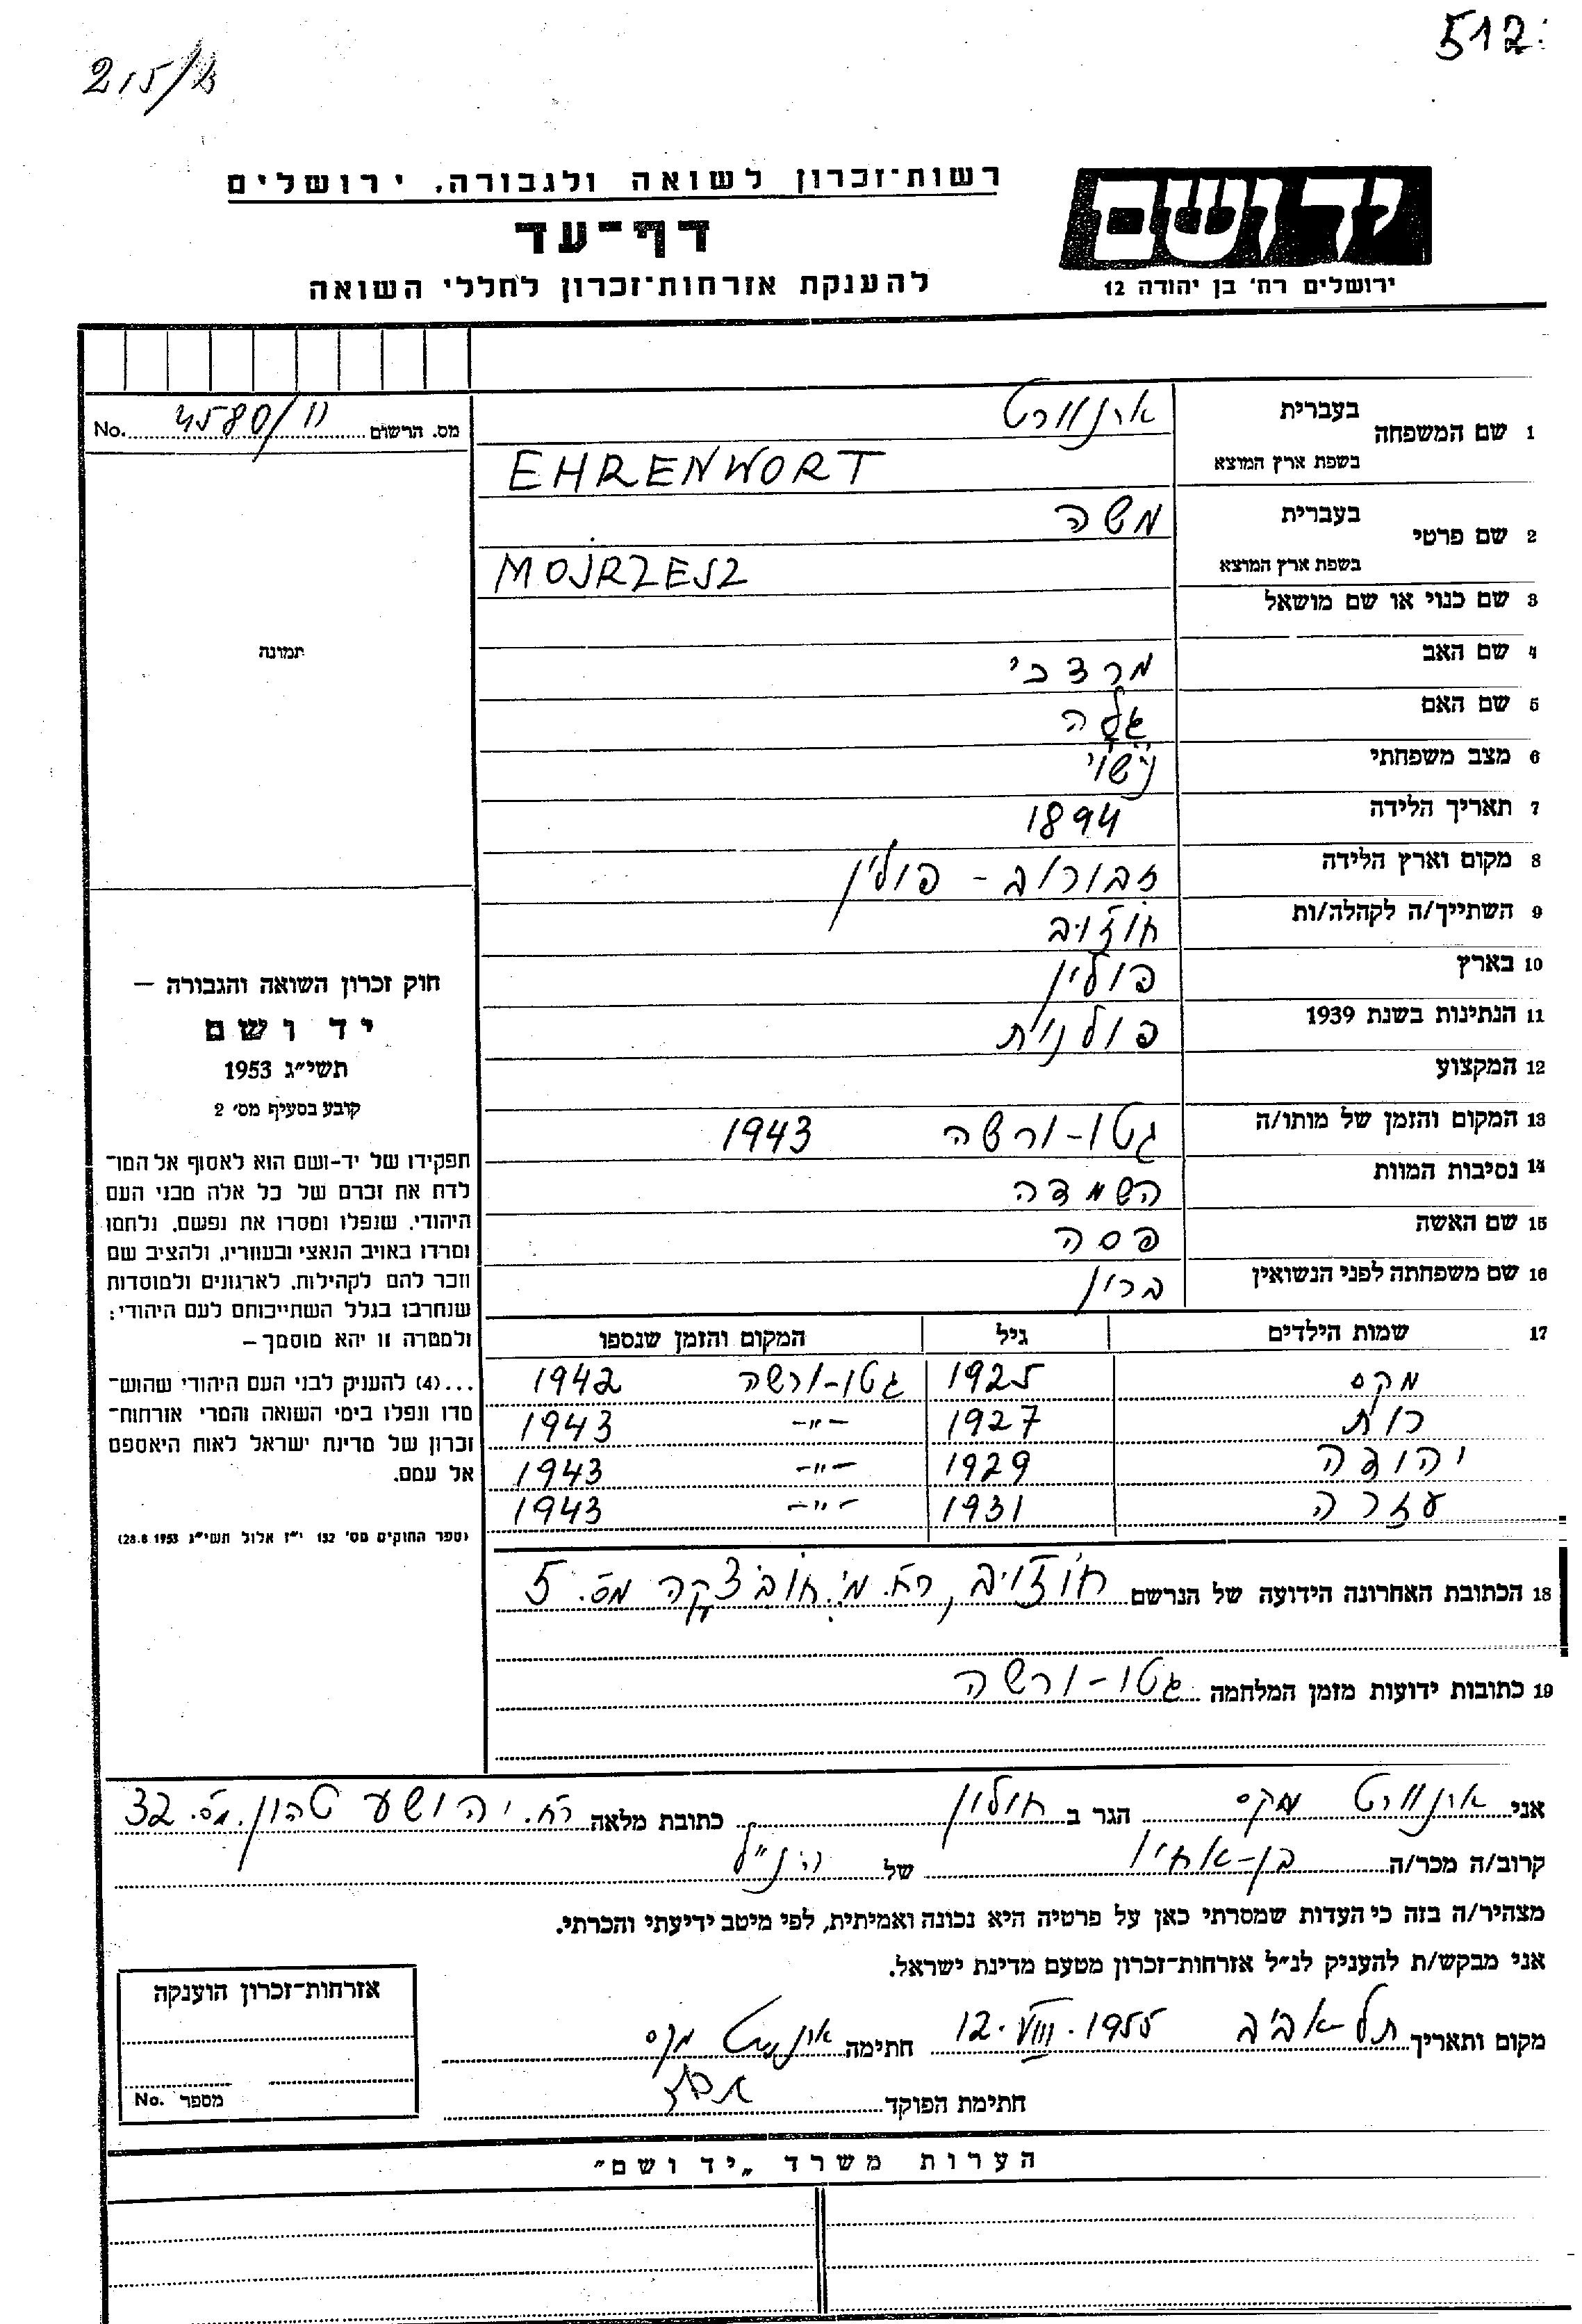 512
215/
רשות־זכרון לשואה ולגבורה, ירושלים
דף־עד
להענקת אזרחות־זכרון לחללי השואה
יד ושם
ירושלים רח' בן יהודה 12
מס. הרשום 4580/11 No.
1 שם המשפחה בעברית ארנוורט
בשפת ארץ המוצא EHRENWORT
2 שם פרטי בעברית משה
בשפת ארץ המוצא MOJRZESZ
3 שם כנוי או שם מושאל
4 שם האב מרדכי
5 שם האם
6 מצב משפחתי נישוי
7 תאריך הלידה 1894
8 מקום וארץ הלידה זבורוב - פולין
9 השתייך/ה לקהלה/ות חוז'וב
10 בארץ פולין
11 הנתינות בשנת 1939 פולנית
12 המקצוע
13 המקום והזמן של מותו/ה גטו-ורשה 1943
14 נסיבות המוות השמדה
15 שם האשה פסה
16 שם משפחתה לפני הנשואין ברון
17 שמות הילדים גיל המקום והזמן שנספו
מקס 1925 גטו-ורשה 1942
רות 1927 -"- 1943
יהודה 1929 -"- 1943
עזרה 1931 -"- 1943
תמונה
חוק זכרון השואה והגבורה —
יד ושם
תשי"ג 1953
קובע בסעיף מס' 2
תפקידו של יד-ושם הוא לאסוף אל המו־
לדת את זכרם של כל אלה מבני העם
היהודי, שנפלו ומסרו את נפשם, נלחמו
ומרדו באויב הנאצי ובעוזריו, ולהציב שם
וזכר להם לקהילות, לארגונים ולמוסדות
שנחרבו בגלל השתייכותם לעם היהודי;
ולמטרה זו יהא מוסמך —
...(4) להעניק לבני העם היהודי שהוש־
מדו ונפלו בימי השואה והמרי אזרחות־
זכרון של מדינת ישראל לאות היאספם
אל עמם.
(ספר החוקים מס' 132 י"ז אלול תשי"ג 28.8.1953)
18 הכתובת האחרונה הידועה של הנרשם חוז'וב, רח. מס. 5
19 כתובות ידועות מזמן המלחמה גטו-ורשה
אני ארנוורט מקס הגר ב חולון כתובת מלאה רח. יהושע טהון מס. 32
קרוב/ה מכר/ה בן-אחיו של הנ"ל
מצהיר/ה בזה כי העדות שמסרתי כאן על פרטיה היא נכונה ואמיתית, לפי מיטב ידיעתי והכרתי.
אני מבקש/ת להעניק לנ"ל אזרחות־זכרון מטעם מדינת ישראל.
מקום ותאריך תל אביב 12.VIII.1955 חתימה ארנוורט מקס
חתימת הפוקד
אזרחות־זכרון הוענקה
מספר No.
הערות משרד „יד ושם"